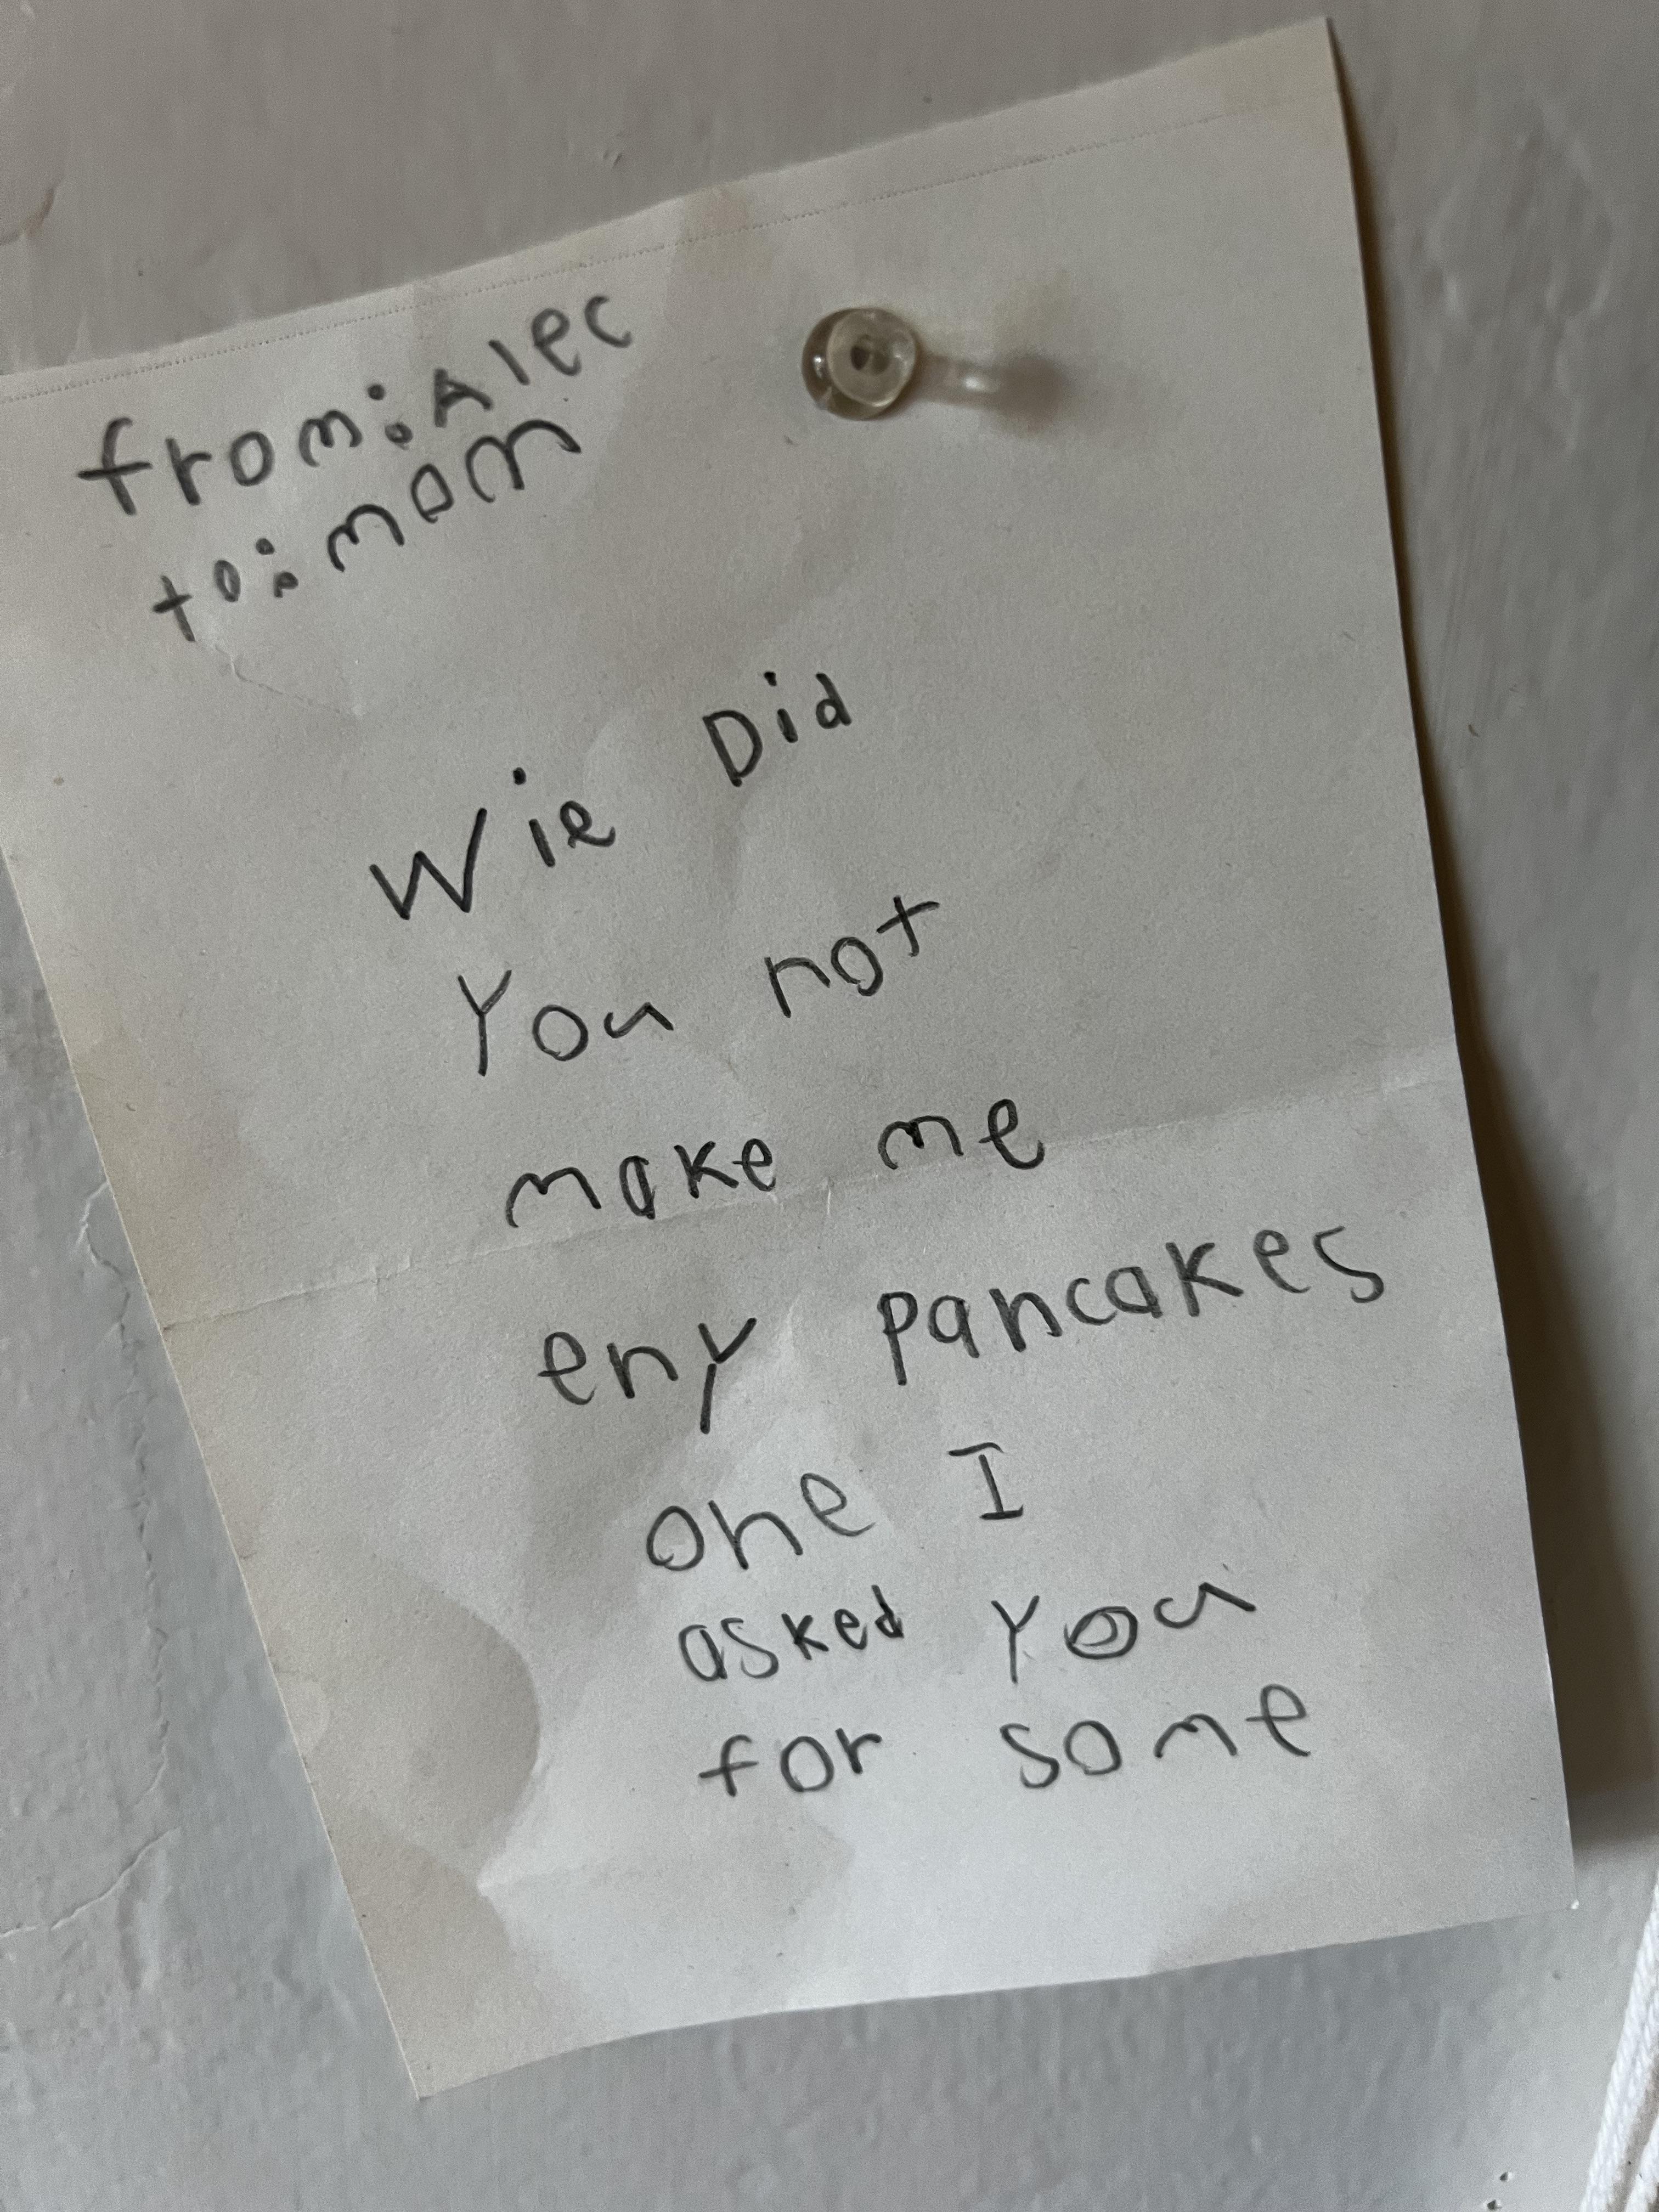 from: Alec
to: mom
Wie Did
You not
make me
eny pancakes
one I
asked You
for some